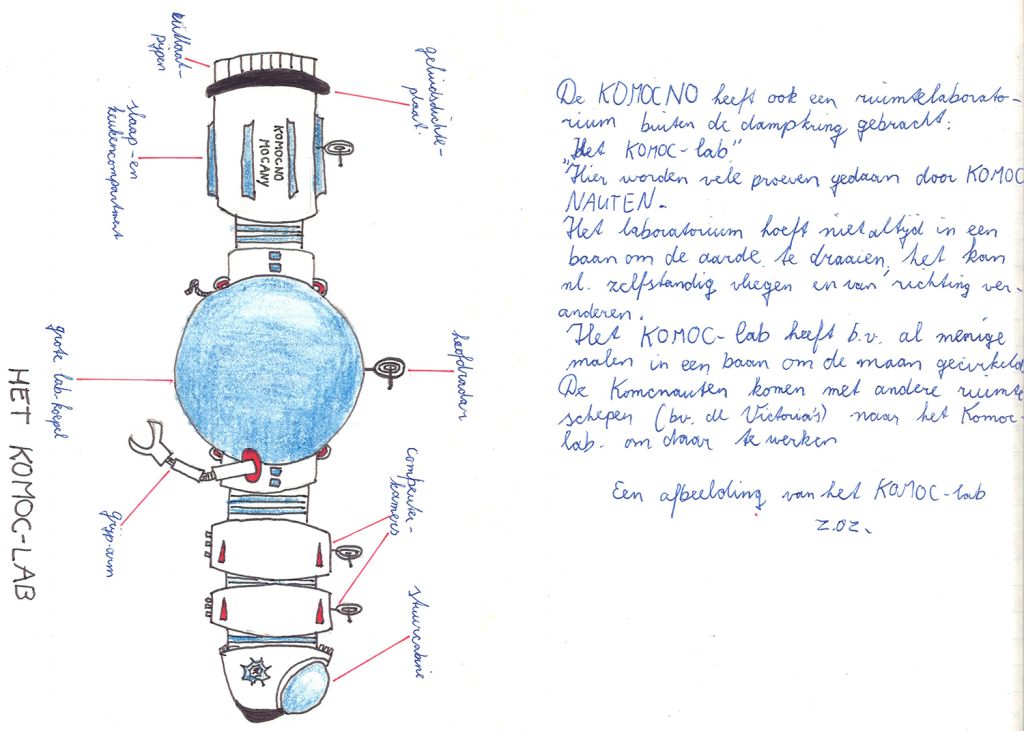 uitlaat-
pijpen
geluidsdichte-
plaat.
slaap- en
keukencompartiment
KOMOCNO
MOCANY
grote lab. koepel
hoofdradar
HET KOMOC-LAB
computer-
kamers
grijp-arm
stuurcabine
De KOMOCNO heeft ook een ruimtelaborato-
rium buiten de dampkring gebracht:
Het KOMOC-lab"
"Hier worden vele proeven gedaan door KOMOC
NAUTEN.
Het laboratorium hoeft niet altijd in een
baan om de aarde te draaien, het kan
nl. zelfstandig vliegen en van richting ver-
anderen.
Het KOMOC-lab heeft b.v. al menige
malen in een baan om de maan gecirkeld.
De Komcnauten komen met andere ruimte
schepen (bv. de Victoria's) naar het Komoc-
lab. om daar te werken
Een afbeelding van het KOMOC-lab
z.o.z.